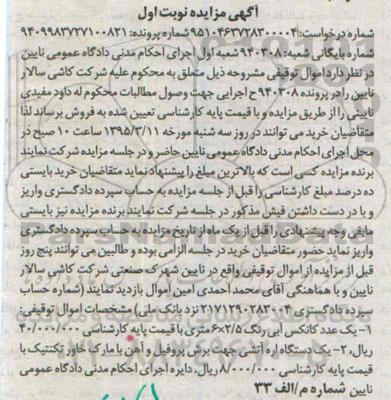 آگهی مزایده نوبت اول
شماره درخواست: ۹۵۱۰۴۶۳۷۲۸۳۰۰۰۰۴ شماره پرونده: ۹۴۰۹۹۸۳۷۲۷۱۰۰۸۲۱
شماره بایگانی شعبه: ۹۴۰۳۰۸ شعبه اول اجرای احکام مدنی دادگاه عمومی نایین
در نظر دارد اموال توقیفی مشروحه ذیل متعلق به محکوم علیه شرکت کاشی سالار
نایین را در پرونده ۹۴۰۳۰۸ ح اجرایی جهت وصول مطالبات محکوم له داود مفیدی
نایینی را از طریق مزایده و با قیمت پایه کارشناسی تعیین شده به فروش برساند لذا
متقاضیان خرید می توانند در روز سه شنبه مورخه ۱۳۹۵/۳/۱۱ ساعت ۱۰ صبح در
محل اجرای احکام مدنی دادگاه عمومی نایین حاضر و در جلسه مزایده شرکت نمایند
برنده مزایده کسی است که بالاترین مبلغ را پیشنهاد نماید متقاضیان خرید بایستی
ده درصد مبلغ کارشناسی را قبل از جلسه مزایده به حساب سپرده دادگستری واریز
و با در دست داشتن فیش مذکور در جلسه شرکت نمایند برنده مزایده نیز بایستی
مابقی وجه پیشنهادی را قبل از یک ماه از تاریخ مزایده به حساب سپرده دادگستری
واریز نماید حضور متقاضیان خرید در جلسه الزامی بوده و طالبین می توانند پنج روز
قبل از مزایده از اموال توقیفی واقع در نایین شهرک صنعتی شرکت کاشی سالار
نایین و با هماهنگی آقای محمد احمدی امین اموال بازدید نمایند (شماره حساب
سپرده دادگستری ۲۱۷۱۲۹۰۲۸۳۰۰۴ نزد بانک ملی) مشخصات اموال توقیفی:
۱- یک عدد کانکس آبی رنگ ۶×۲/۵ متری با قیمت پایه کارشناسی ۴۰/۰۰۰/۰۰۰
ریال ۲۰- یک دستگاه اره آتشی جهت برش پروفیل و آهن با مارک خاور تکنتیک با
قیمت پایه کارشناسی ۸/۰۰۰/۰۰۰ ریال. دایره اجرای احکام مدنی دادگاه عمومی
نایین شماره م/الف ۳۳